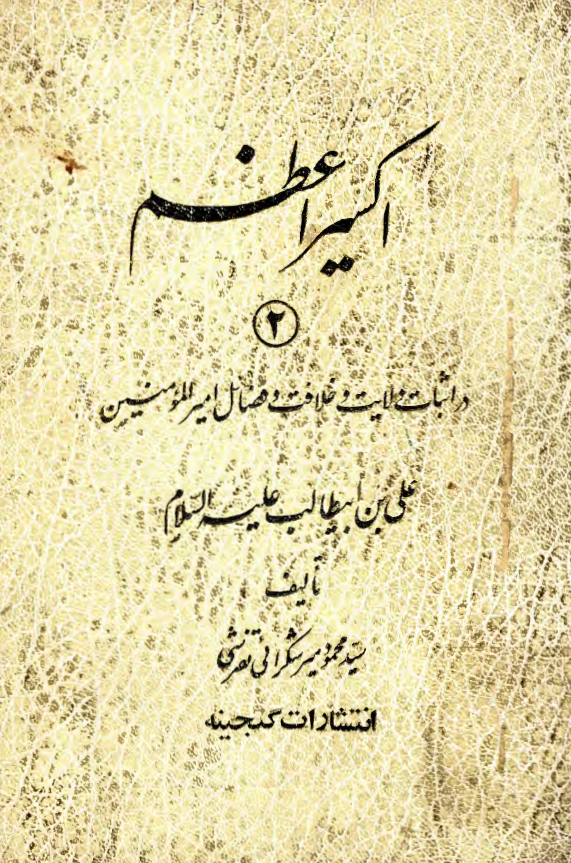 اکسیر اعظم
۲
در اثبات ولایت و خلافت و فضائل امیرالمؤمنین
علی بن ابیطالب علیه السّلام
تألیف
سیّد محمود میرشکرائی تفرشی
انتشارات گنجینه